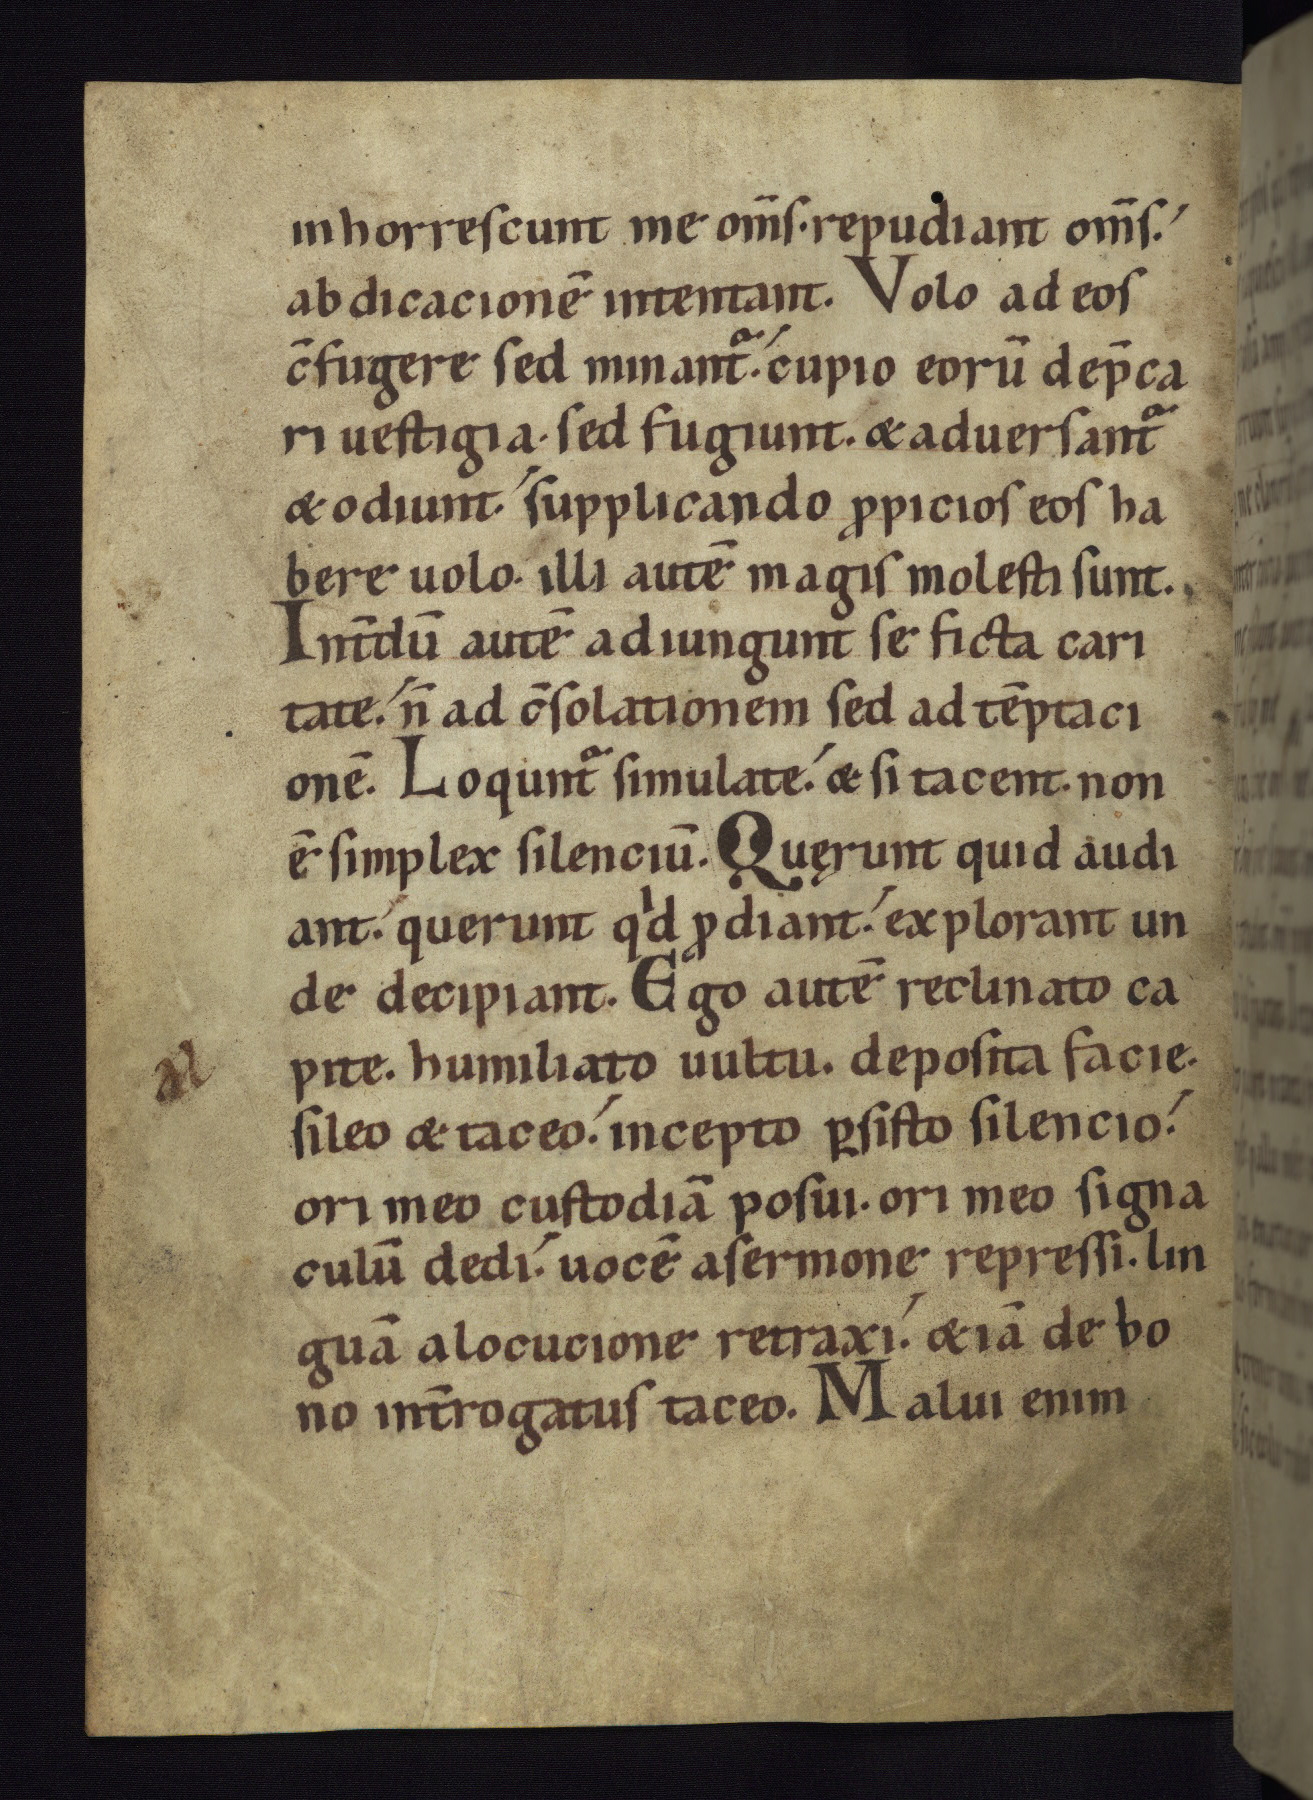 inhorrescunt me om̄s. repudiant om̄s.
abdicacionē intentant. Volo ad eos
c̄fugere sed minant᷑. cupio eorū dep̄ca
ri uestigia. sed fugiunt. & aduersant᷑
& odiunt. supplicando ꝓpicios eos ha
bere uolo. illi autē magis molesti sunt.
Int̄dū autē adiungunt se ficta cari
tate. n̄ ad c̄solationem sed ad tēptaci
onē. Loqunt᷑ simulate. & si tacent. non
ē simplex silenciū. Quęrunt quid audi
ant. querunt qͥd ꝓdiant. explorant un
de decipiant. Ego autē reclinato ca
pite. humiliato uultu. deposita facie.
al
sileo & taceo. incepto ꝑsisto silencio.
ori meo custodiā posui. ori meo signa
culū dedi. uocē a sermone repressi. lin
guā a locucione retraxi. & iā de bo
no int̄rogatus taceo. Malui enim